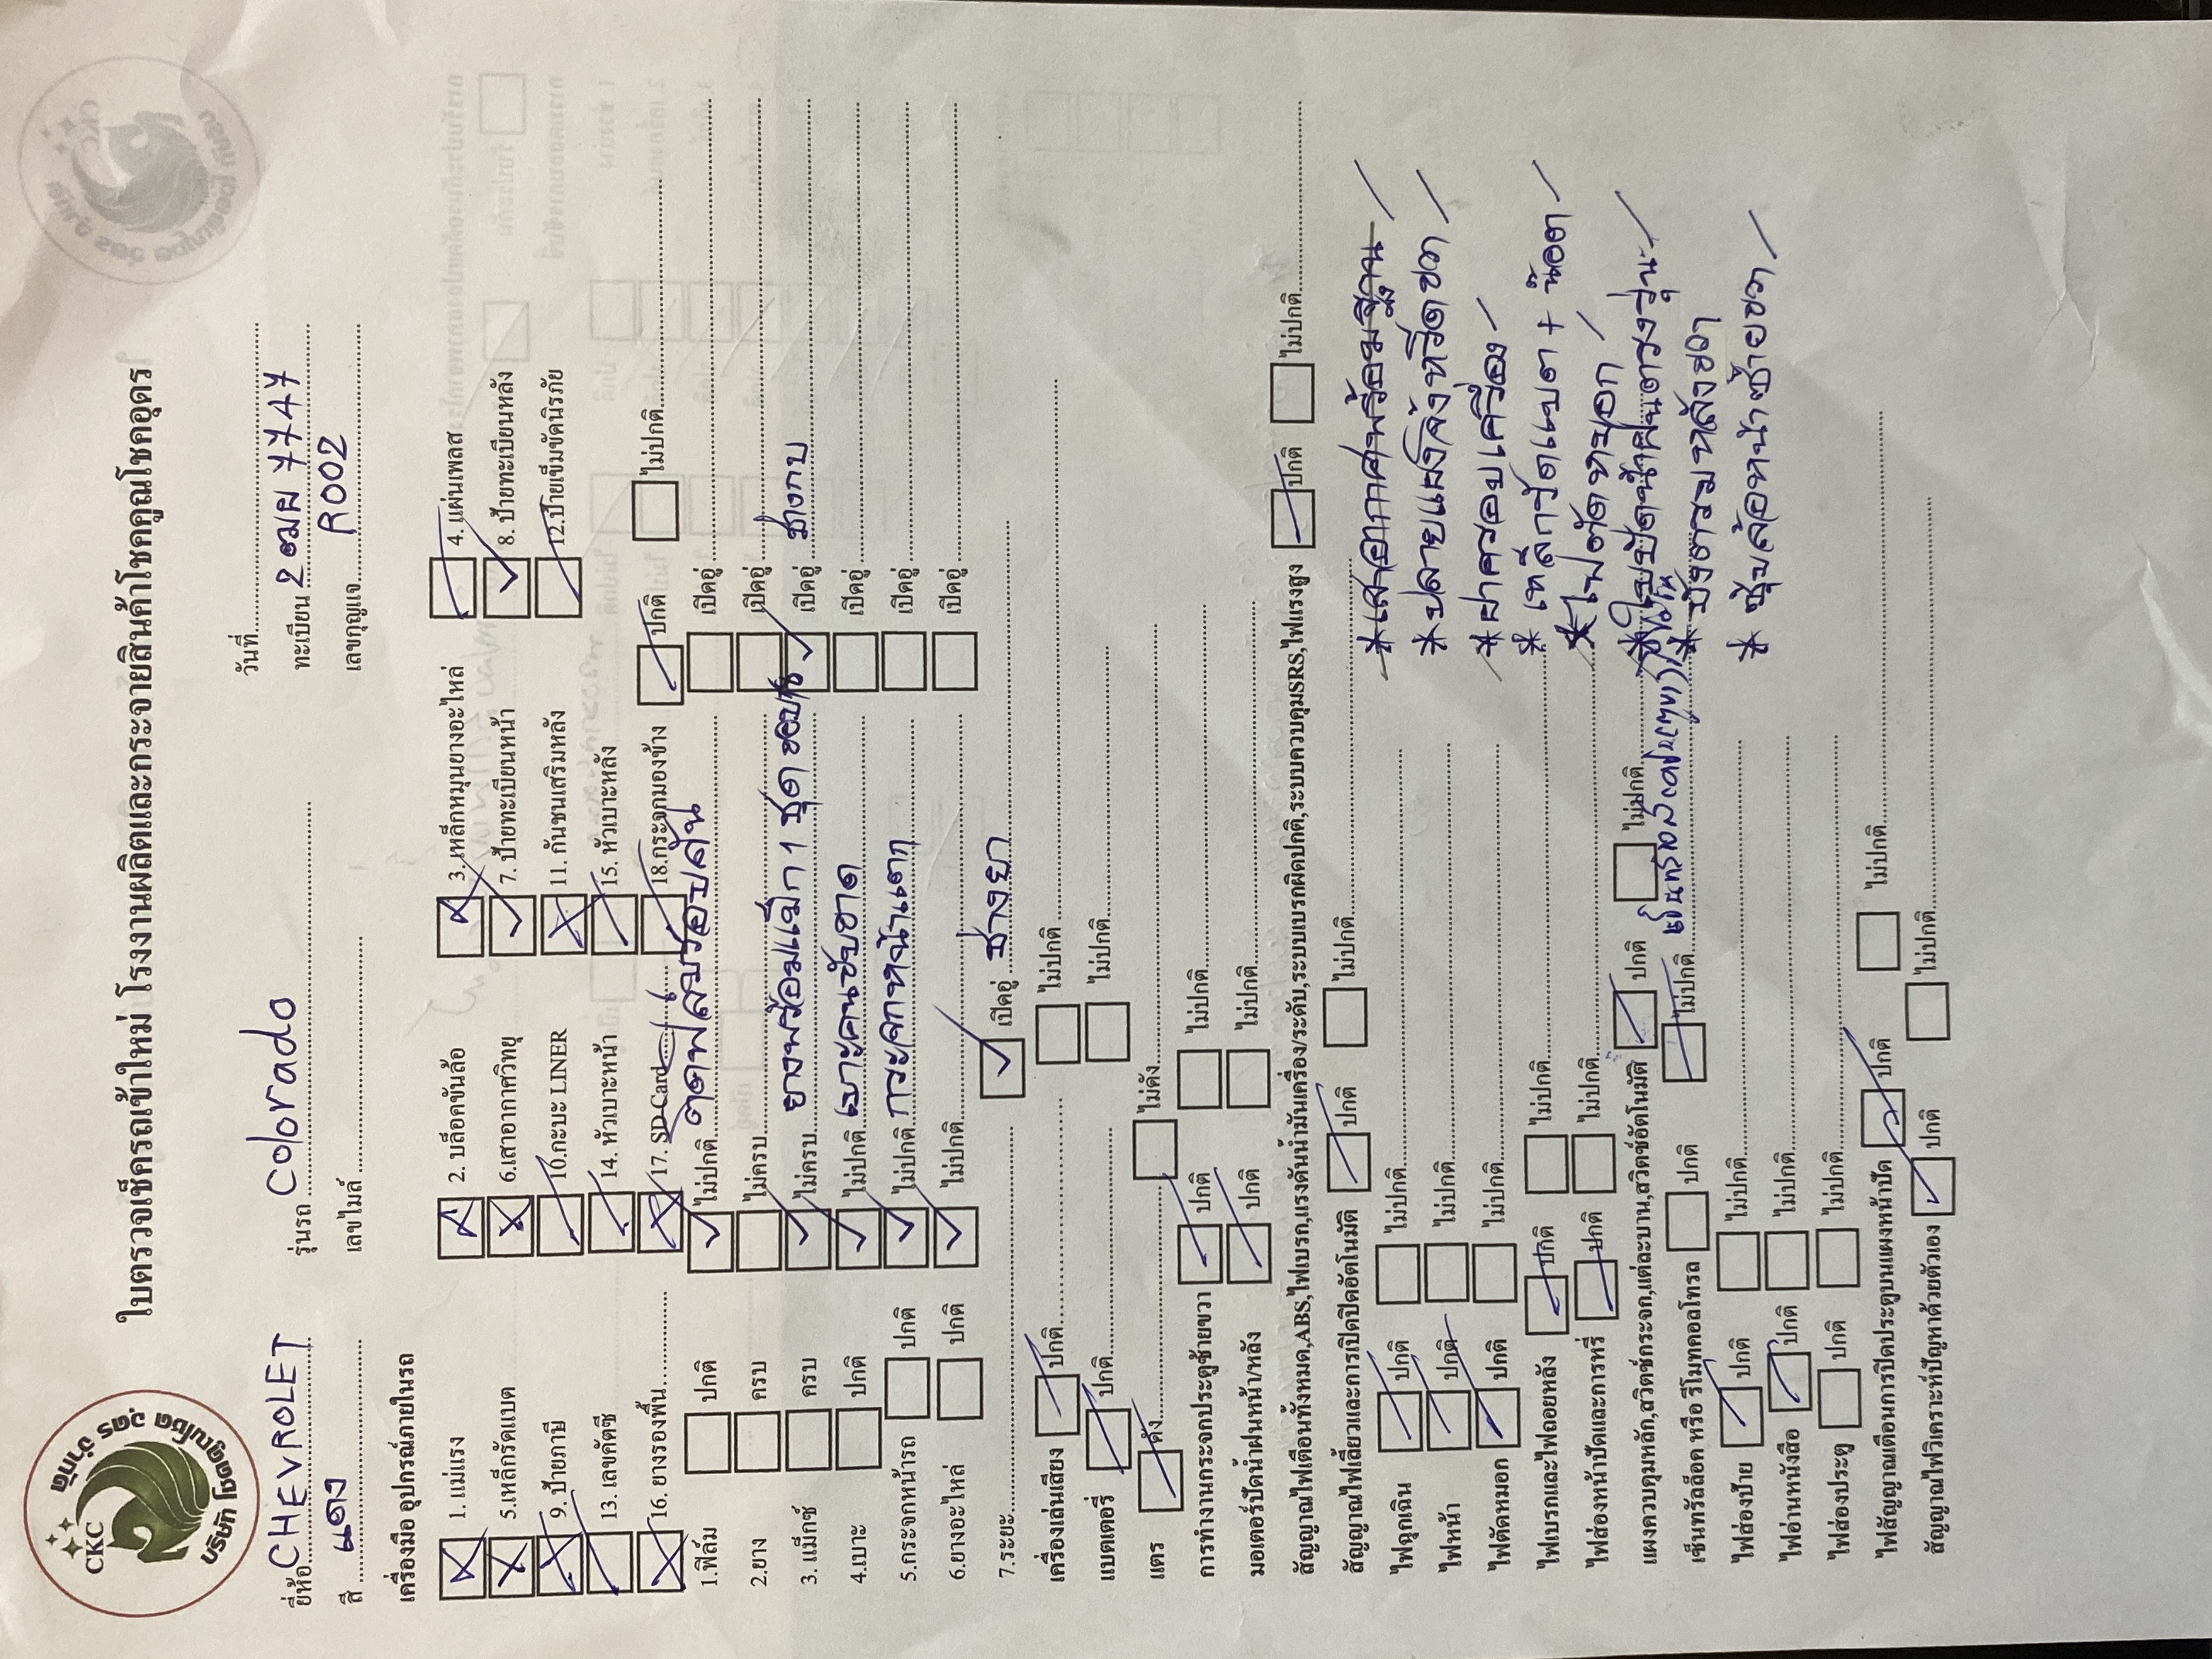 CKC
บริษัท คูณโชคอุดร จำกัด
ใบตรวจเช็ครถเข้าใหม่ โรงงานผลิตและกระจายสินค้าโชคคูณโชคอุดร
วันที่
ยี่ห้อ CHEVROLET รุ่นรถ Colorado ทะเบียน 2ฒผ 7747
สี แดง เลขไมล์ เลขกุญแจ R002
เครื่องมือ อุปกรณ์ภายในรถ
1. แม่แรง 2. บล็อคขันล้อ 3. เหล็กหมุนยางอะไหล่ 4. แผ่นเพลส
5.เหล็กรัดแบต 6.เสาอากาศวิทยุ 7. ป้ายทะเบียนหน้า 8. ป้ายทะเบียนหลัง
9. ป้ายภาษี 10.กะบะ LINER 11. กันชนเสริมหลัง 12.ป้ายเข็มขัดนิรภัย
13. เลขคัตซี 14. หัวเบาะหน้า 15. หัวเบาะหลัง
16. ยางรองพื้น 17. SD Card 18.กระจกมองข้าง ปกติ ไม่ปกติ
1.ฟิล์ม ปกติ ไม่ปกติ ติดฟิล์มรอบคัน เปิดอู่
2.ยาง ครบ ไม่ครบ เปิดอู่
3. แม็กซ์ ครบ ไม่ครบ ยางพร้อมแม็ก 1 ชุด เปิดอู่ ช่างกบ
4.เบาะ ปกติ ไม่ปกติ เบาะคนขับขาด เปิดอู่
5.กระจกหน้ารถ ปกติ ไม่ปกติ กระจกหน้าแตก เปิดอู่
6.ยางอะไหล่ ปกติ ไม่ปกติ เปิดอู่
7.ระยะ เปิดอู่ ช่างยา
เครื่องเล่นเสียง ปกติ ไม่ปกติ
แบตเตอรี่ ปกติ ไม่ปกติ
แตร ดัง ไม่ดัง
การทำงานกระจกประตูซ้ายขวา ปกติ ไม่ปกติ
มอเตอร์ปัดน้ำฝนหน้า/หลัง ปกติ ไม่ปกติ
สัญญาณไฟเตือนทั้งหมด,ABS,ไฟเบรก,แรงดันน้ำมันเครื่อง/ระดับ,ระบบเบรกผิดปกติ,ระบบควบคุมSRS,ไฟแรงสูง ปกติ ไม่ปกติ
สัญญาณไฟเลี้ยวและการเปิดปิดอัตโนมัติ ปกติ ไม่ปกติ
*เสาอากาศพร้อมฐาน
ไฟฉุกเฉิน ปกติ ไม่ปกติ
*ปลายแผงจังหรีดขวา
ไฟหน้า ปกติ ไม่ปกติ
*ฝาครอบเครื่อง
ไฟตัดหมอก ปกติ ไม่ปกติ
* เหล็กรัดแบต + น๊อต
ไฟเบรกและไฟถอยหลัง ปกติ ไม่ปกติ
*ไฟตัดหมอก
ไฟส่องหน้าปัดและการหรี่ ปกติ ไม่ปกติ
*ใบปัดน้ำฝนตรงรุ่น
แผงควบคุมหลัก,สวิตช์กระจก,แต่ละบาน,สวิตช์อัตโนมัติ ปกติ ไม่ปกติ
* บังตรมหลังขวา
เซ็นทรัลล็อค หรือ รีโมทคอลโทรล ปกติ ไม่ปกติ
* ซุ้มล้อหน้าซ้ายขวา
ไฟส่องป้าย ปกติ ไม่ปกติ
ไฟอ่านหนังสือ ปกติ ไม่ปกติ
ไฟส่องประตู ปกติ ไม่ปกติ
ไฟสัญญาณเตือนการปิดประตูบนแผงหน้าปัด ปกติ ไม่ปกติ
สัญญาณไฟวิเคราะห์ปัญหาด้วยตัวเอง ปกติ ไม่ปกติ